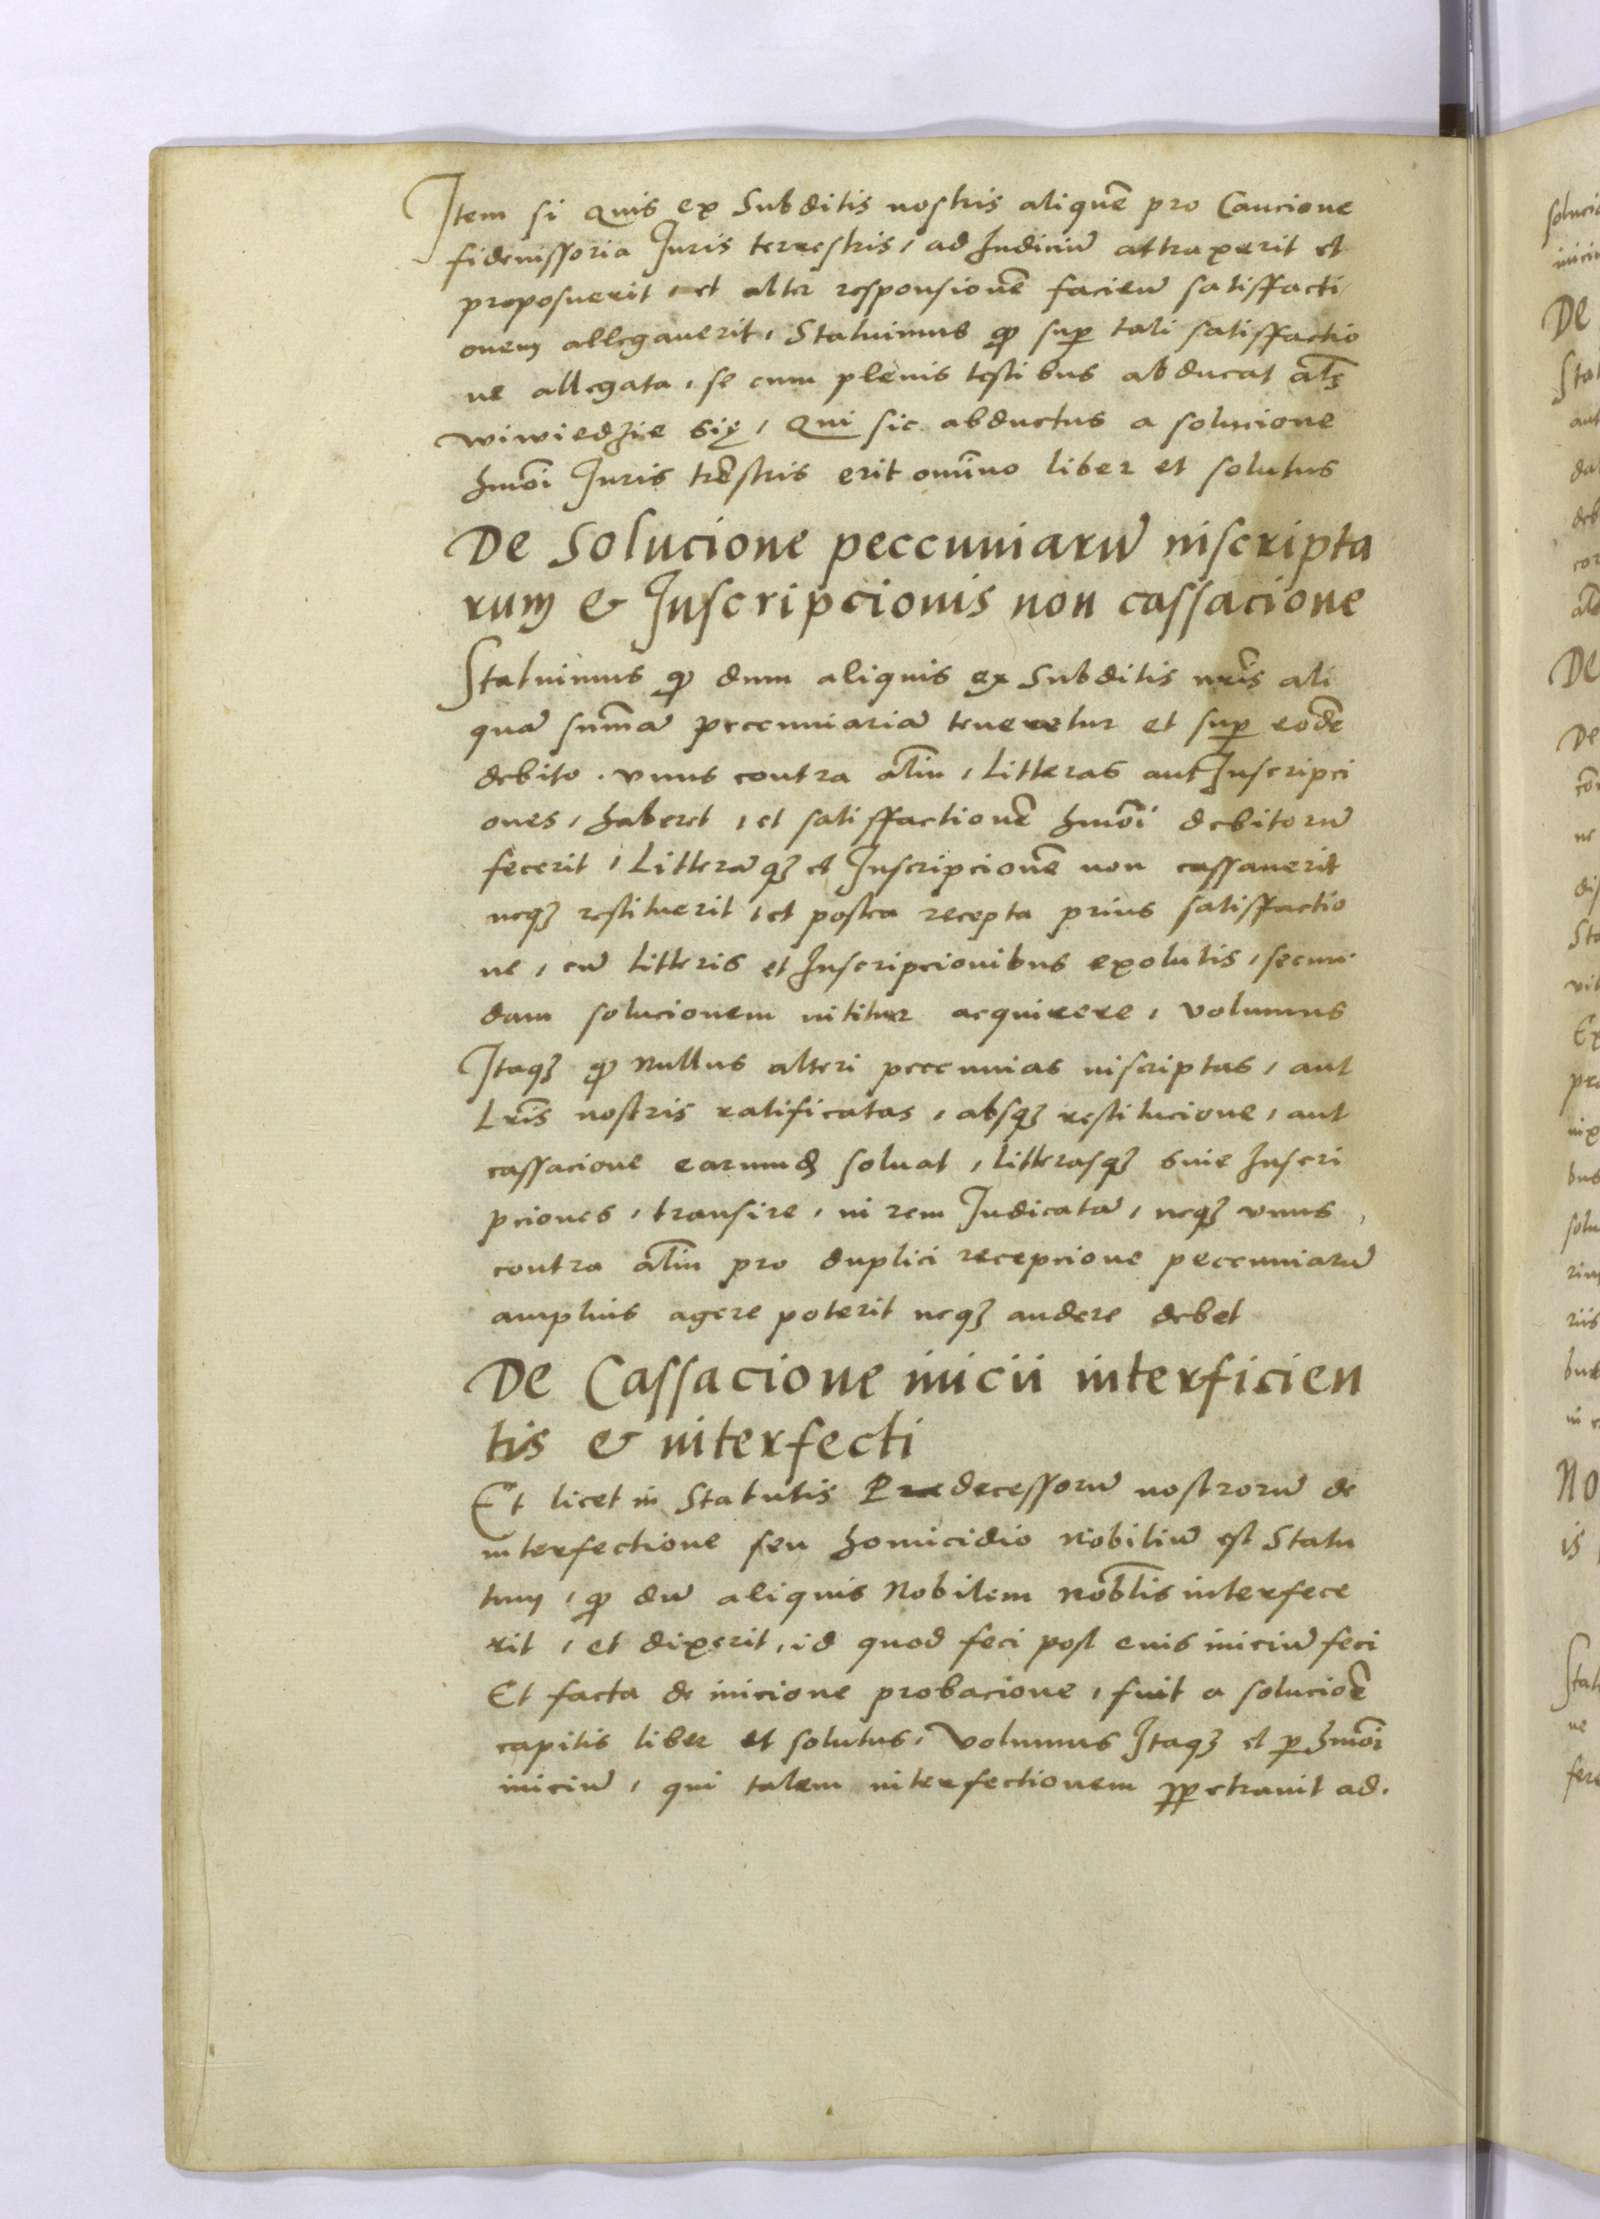 Item si Quis ex Subditis nostris aliquē pro Caucione
fideiussoria Iuris terrestris, ad Iudiciū attraxerit et
proposuerit, et alter responsionē facieū satisffacti
onem allegauerit, Statuimus ꝙ suꝑ tali satisffactio
ne allegata, se cum plenis testibus abducat al͞s
wiwiedzie się, Qui sic abductus a solucione
hmōi Iuris trēstris erit omīno liber et solutus
De Solucione peccuniarū inscripta
rum & Inscripcionis non cassacione
Statuimus ꝙ dum aliquis ex Subditis nrīs ali
quā summā peccuniariā teneretur et suꝑ eodē
debito. vnus contra alīū, Litteras aut Inscripci
ones, haberet, et satisffactionē hmōi debitorū
fecerit, Litterāqꝫ et Inscripcionē non cassauerit
neqꝫ restituerit, et postea recepta prius satisffactio
ne, cū litteris et Inscripcionibus exolutis, secun
dam solucionem nititur acquirere, volumus
Itaqꝫ ꝙ Nullus alteri peccunias inscriptas, aut
Lrīs nostris ratificatas, absqꝫ restitucione, aut
cassacione earumd soluat, litterasqꝫ siue Inscri
pciones, transire, in rem Iudicatā, neqꝫ vnus
contra alīū pro duplici recepcione peccuniarū
amplius agere poterit neqꝫ audere debet
De Cassacione inicii interficien
tis & interfecti
Et licet in Statutis Predecessorū nostrorū de
interfectione seu homicidio Nobiliū est Statu
tum, ꝙ dū aliquis Nobilem nob̄lis interfece
rit, et dixerit, id quod feci post euis iniciū feci
Et facta de inicione probacione, fuit a solucioē
capitis liber et solutus, Volumus Itaqꝫ et ꝑ hmōi
iniciū, qui talem interfectionem ꝑpetrauit ad.